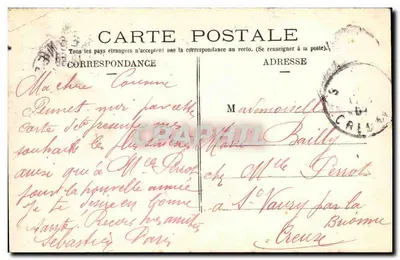 CARTE POSTALE
Tous les pays étrangers n'acceptent pas la correspondance au recto. (Se renseigner à la poste).
CORRESPONDANCE
ADRESSE
Ma chère Cousine
Permet moi par cette
carte de présenter mes
souhaits les
ainsi que à Mlle Perrot
pour la nouvelle année
Je te désire en bonne
santé Reçois mes amitiés
Sébastien Paris
Mademoiselle
Marie Bailly
chez Mlle Perrot
à St Vaury par la
Brionne
Creuse
CREUSE